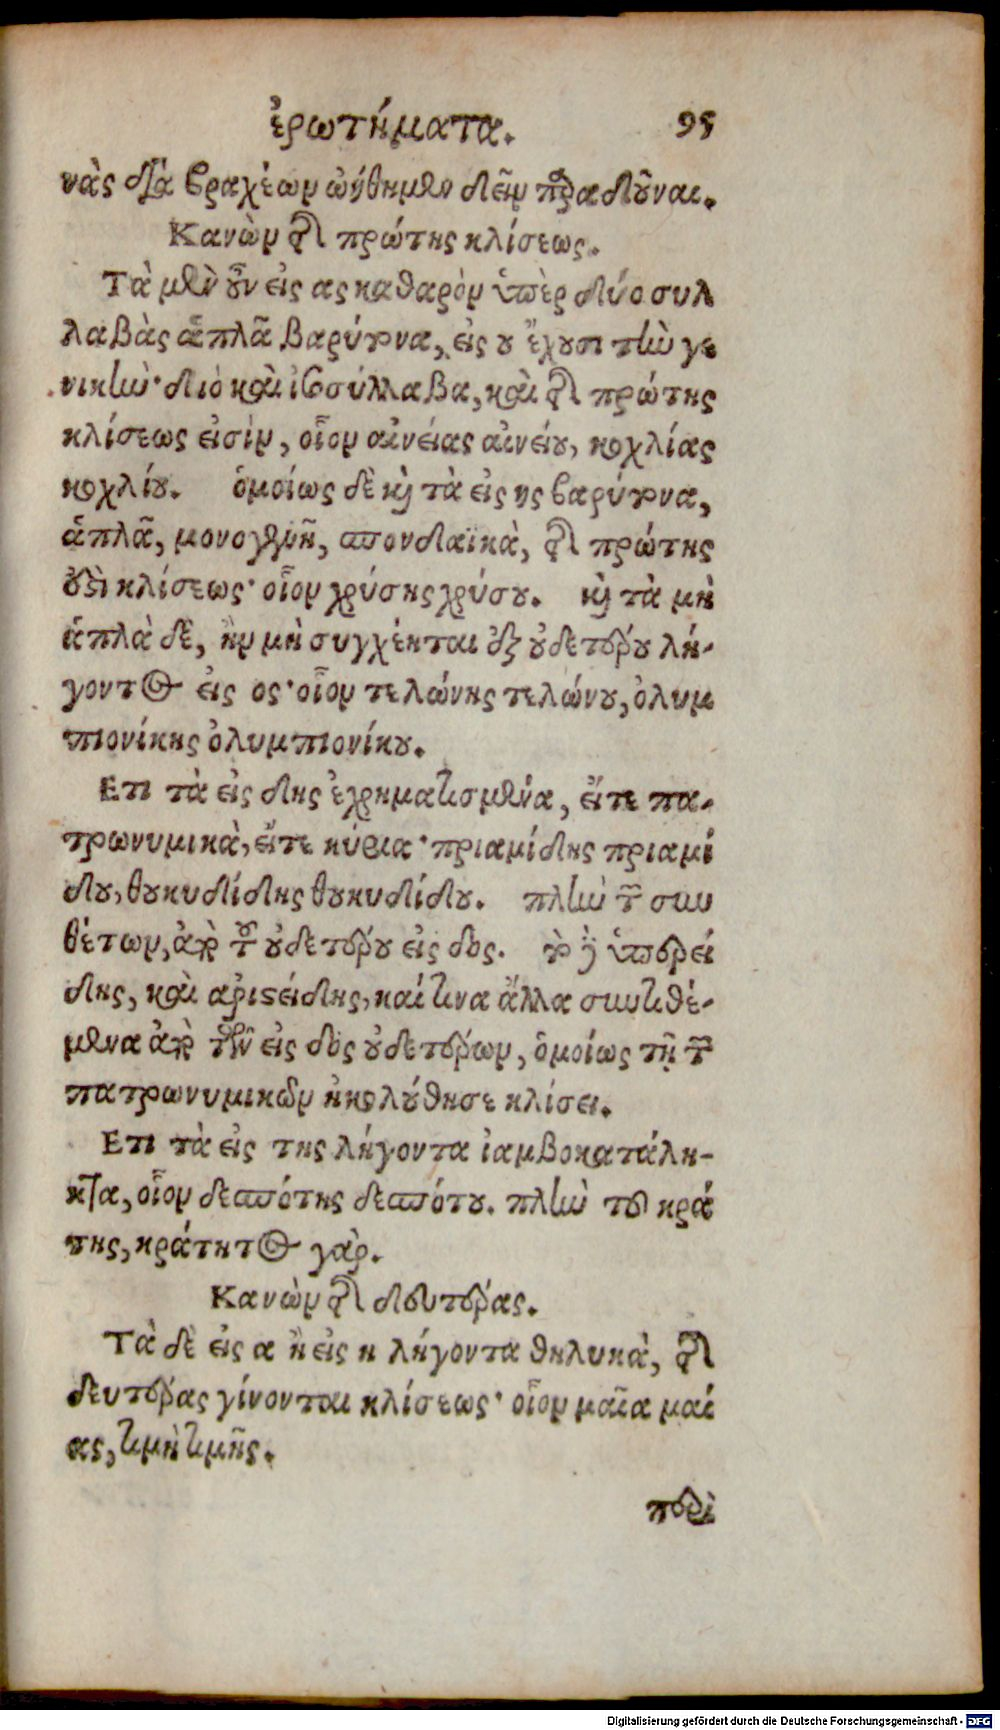 ἐρωτήματα. 95
νὰς διὰ βραχέων ᾠήθημεν δεῖν παραδοῦναι.
Κανὼν τῆς πρώτης κλίσεως.
Τὰ μὲν οὖν εἰς ας καθαρὸν ὑπὲρ δύο συλ
λαβὰς ἁπλᾶ βαρύτονα, εἰς ου ἔχουσι τὴν γε
νικήν· διὸ καὶ ἰσοσύλλαβα, καὶ τῆς πρώτης
κλίσεως εἰσὶν, οἷον αἰνείας αἰνείου, κοχλίας
κοχλίου. ὁμοίως δὲ καὶ τὰ εἰς ης βαρύτονα,
ἁπλᾶ, μονογενῆ, σπονδαϊκὰ, τῆς πρώτης
ἐστὶ κλίσεως· οἷον χρύσης χρύσου. καὶ τὰ μὴ
ἁπλὰ δὲ, ἢν μὴ συγχέηται ἐξ οὐδετέρου λή-
γοντος εἰς ος· οἷον τελώνης τελώνου, ὀλυμ
πιονίκης ὀλυμπιονίκου.
Ετι τὰ εἰς δης ἐχρηματισμένα, εἴτε πα-
τρωνυμικὰ, εἴτε κύρια· πριαμίδης πριαμί
δου, θουκυδίδης θουκυδίδου. πλὴν τῶν συν
θέτων, ἀπὸ τοῦ οὐδετέρου εἰς δος. τὸ δὲ ὑπερεί
δης, καὶ αριστείδης, καί τινα ἄλλα συντιθέ-
μενα ἀπὸ τῶν εἰς δος οὐδετέρων, ὁμοίως τῇ τῶν
πατρωνυμικῶν ἠκολούθησε κλίσει.
Ετι τὰ εἰς της λήγοντα ἰαμβοκατάλη-
κτα, οἷον δεσπότης δεσπότου. πλὴν τοῦ κρά
της, κράτητος γὰρ.
Κανὼν τῆς δευτέρας.
Τὰ δὲ εἰς α ἢ εἰς η λήγοντα θηλυκὰ, τῆς
δευτέρας γίνονται κλίσεως· οἷον μαῖα μαί
ας, τιμὴ τιμῆς.
περὶ
Digitalisierung gefördert durch die Deutsche Forschungsgemeinschaft - DFG